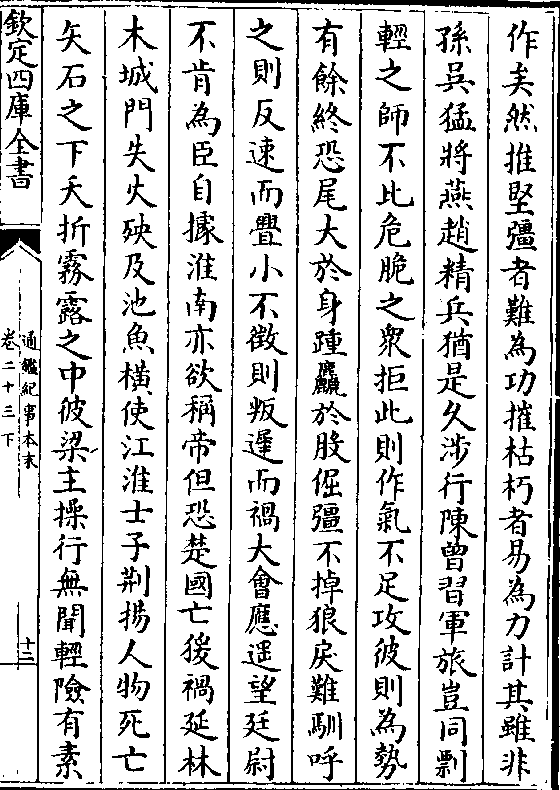 作矣然推堅彊者難為功摧枯朽者易為力計其雖非
孫吳猛將燕趙精兵猶是久涉行陳曾習軍旅豈同剽
輕之師不比危脆之衆拒此則作氣不足攻彼則為勢
有餘終恐尾大於身踵麤於股倔彊不掉狼戾難馴呼
之則反速而舋小不徵則叛遲而禍大會應遥望廷尉
不肯為臣自據淮南亦欲稱帝但恐楚國亡猨禍延林
木城門失火殃及池魚橫使江淮士子荆揚人物死亡
矢石之下夭折霧露之中彼梁主操行無聞輕險有素
欽定四庫全書
通鑑紀事本末
卷二十三下
十二